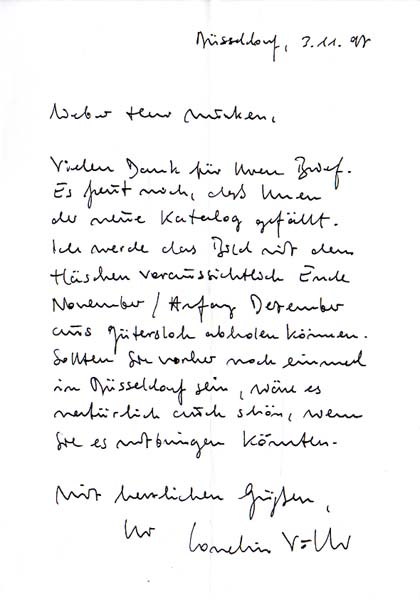 Düsseldorf, 3.11.97
Lieber Herr Mücken,
Vielen Dank für Ihren Brief.
Es freut mich, daß Ihnen
der neue Katalog gefällt.
Ich werde das Bild mit dem
Häschen voraussichtlich Ende
November / Anfang Dezember
aus Gütersloh abholen können.
Sollten Sie vorher noch einmal
in Düsseldorf sein, wäre es
natürlich auch schön, wenn
Sie es mitbringen könnten.
Mit herzlichen Grüßen,
Ihr Cornelius Völker